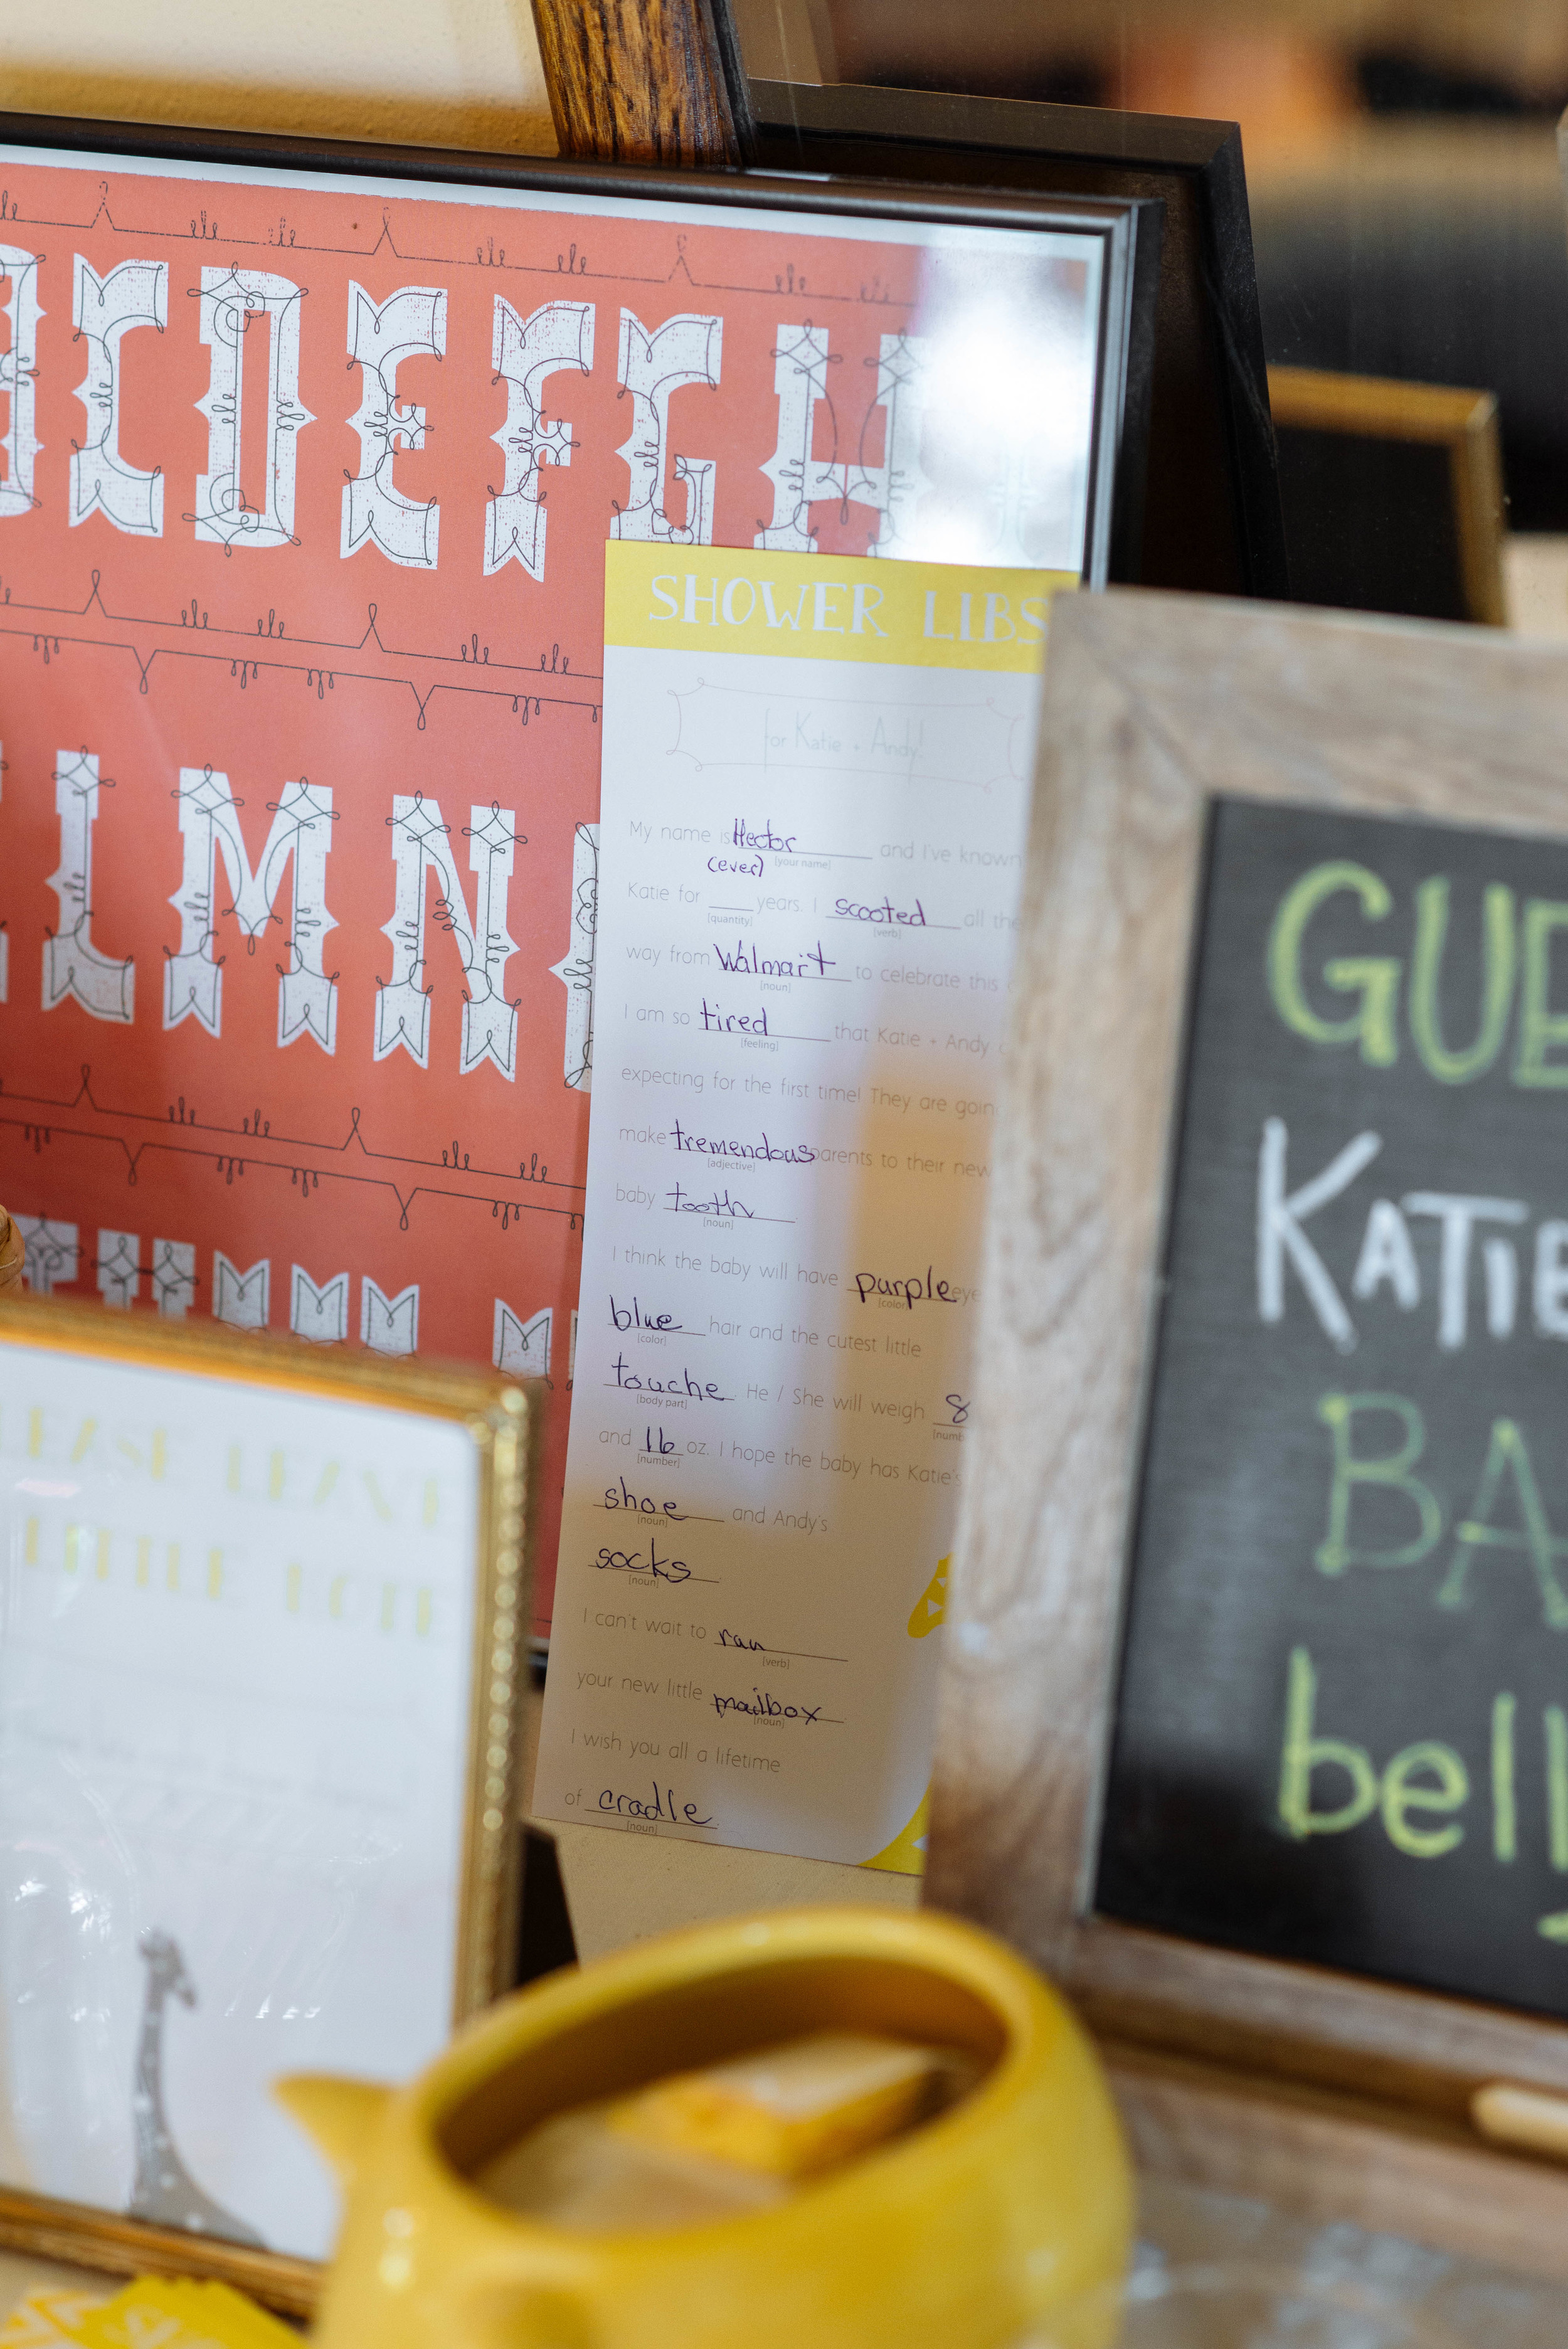 B C D E F G H
L M N
SHOWER LIBS
for Katie + Andy!
My name is Hector and I've known
(ever) [your name]
Katie for ___ years. I scooted all the
[quantity] [verb]
way from Walmart to celebrate this
[noun]
I am so tired that Katie + Andy
[feeling]
expecting for the first time! They are goin
make tremendous parents to their new
[adjective]
baby tooth
[noun]
I think the baby will have purple eye
[color]
blue hair and the cutest little
[color]
touche He / She will weigh 8
[body part] [numb
and 16 oz. I hope the baby has Katie's
[number]
shoe and Andy's
[noun]
socks
[noun]
I can't wait to ran
[verb]
your new little mailbox
[noun]
I wish you all a lifetime
of cradle
[noun]
GUE
KATIE
BA
bell
LEASE LEAVE
LITTLE NOTE